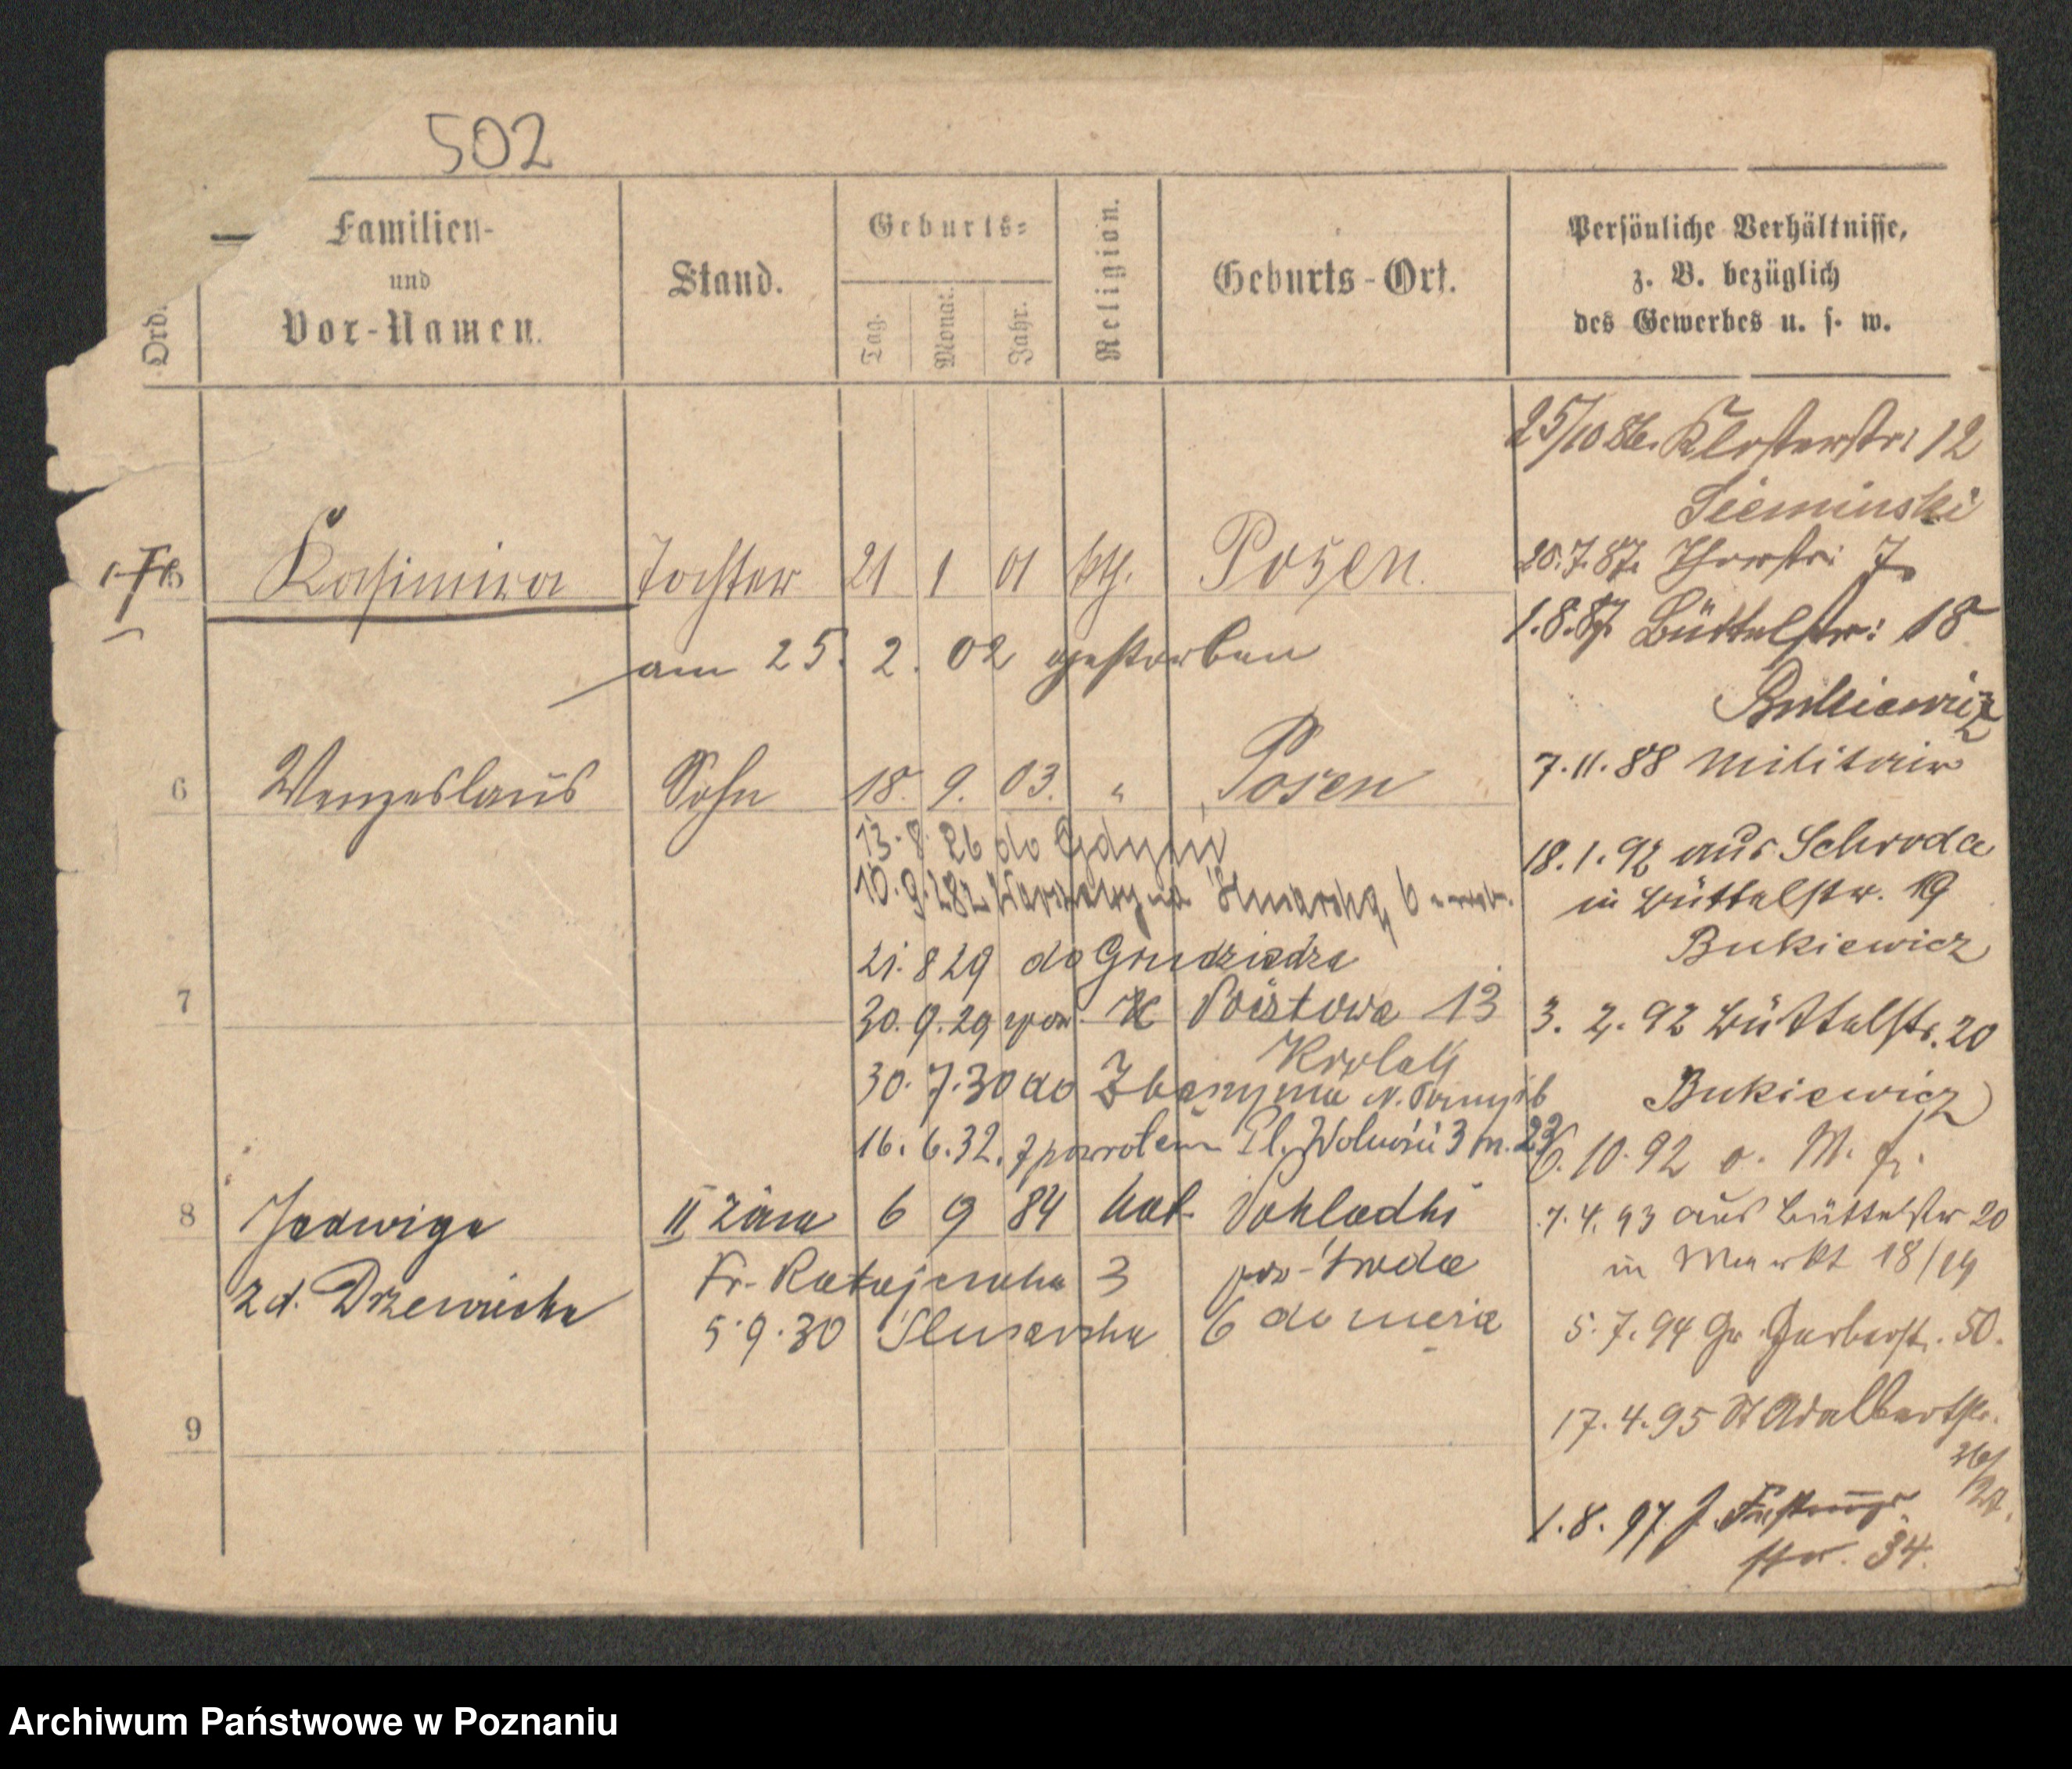 502
Ord.
Familien-
und
Vor-Namen.
Stand.
Geburts-
Tag.
Monat.
Jahr.
Religion.
Geburts-Ort.
Persönliche Verhältnisse,
z. B. bezüglich
des Gewerbes u. s. w.
Kasimira Tochter 21 1 01 kth. Posen.
am 25. 2. 02 gestorben
6 Wenzeslaus Sohn 18. 9. 03. " Posen
13. 8. 26 do Gdyni
10. 9. 28 z 6
21. 8 29 do Grudziądza
30. 9. 29 13
30. 7. 30 do Zbąszynia
16. 6. 32. z powrotem Pl. Wolności 3 m. 23
7
8 Jadwiga II żona 6 9 84 kat.
zd. Drzewiecka Fr. Ratajczaka 3 pow. Środa
5.9.30 Ślusarska 6
9
25/10 86. Klosterstr: 12
Sieminski
20.7.87. Thorstr: 7.
1.8.87 Büttelstr: 18
Bukiewicz
7.11.88 Militair
18.1.92 aus Schroda
in Büttelstr. 19
Bukiewicz
3. 2. 92 Büttelstr. 20
Bukiewicz
6. 10. 92
7. 4. 93 aus Büttelstr 20
in Markt 18/19
5. 7. 94 Gr. Gerberst. 50.
17. 4. 95 St Adalbertstr.
1. 8. 97
str. 34.
Archiwum Państwowe w Poznaniu